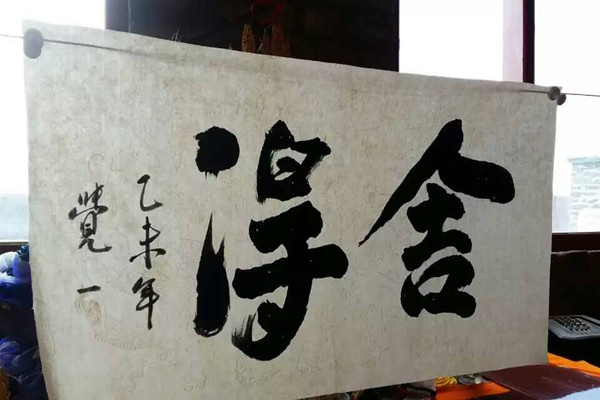 舍得
乙未年
覺一